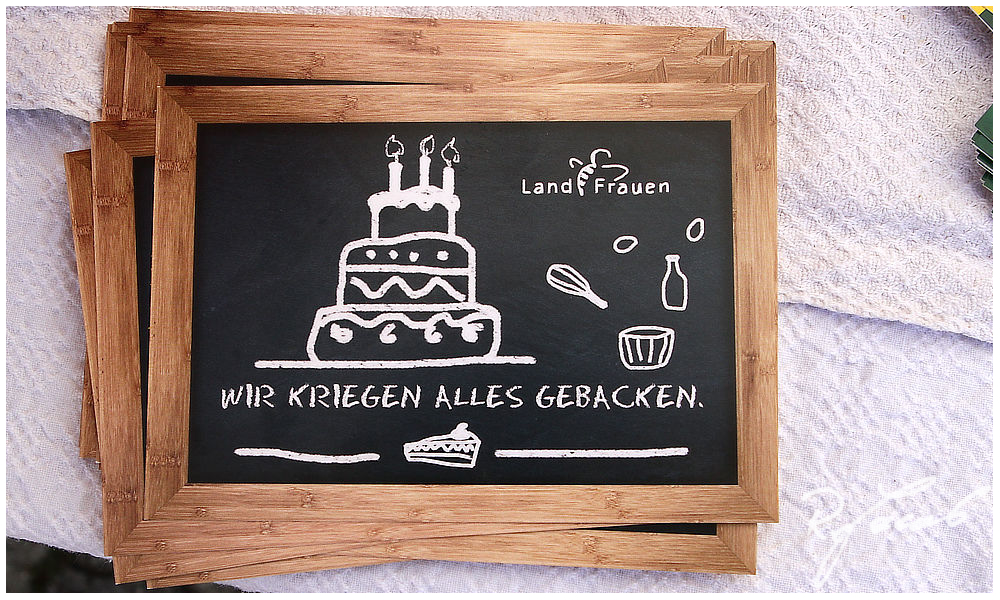 Land Frauen
WIR KRIEGEN ALLES GEBACKEN.